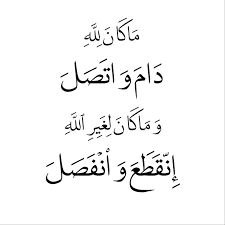 مَاكَانَ لِلَّهِ
دَامَ وَ اتَصَلَ
وَ مَاكَانَ لِغَيرِ اللَّهِ
إِنّقَطَعَ وَ انْفَصَلَ